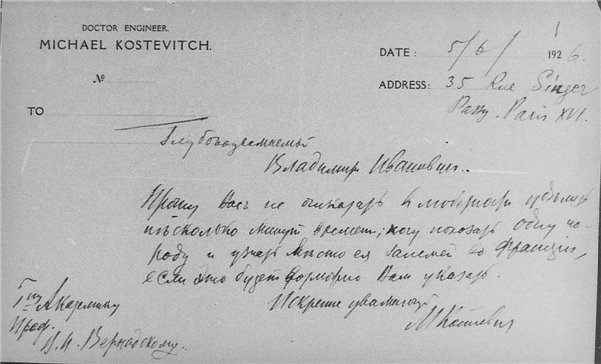 DOCTOR ENGINEER.
MICHAEL KOSTEVITCH.
№
TO
DATE: 5/6/ 1926.
ADDRESS: 35 Rue Singer
Passy. Paris XVI.
Глубокоуважаемый
Владимир Иванович.
Прошу Васъ не отказать въ любезности удѣлить
нѣсколько минутъ времени, хочу показать одну по-
роду и узнать мѣсто ея залежей во Франціи,
если это будетъ Вам указать.
Искренне уважающій
МКостевич
Гну Академику
Проф.
В. И. Вернадскому.